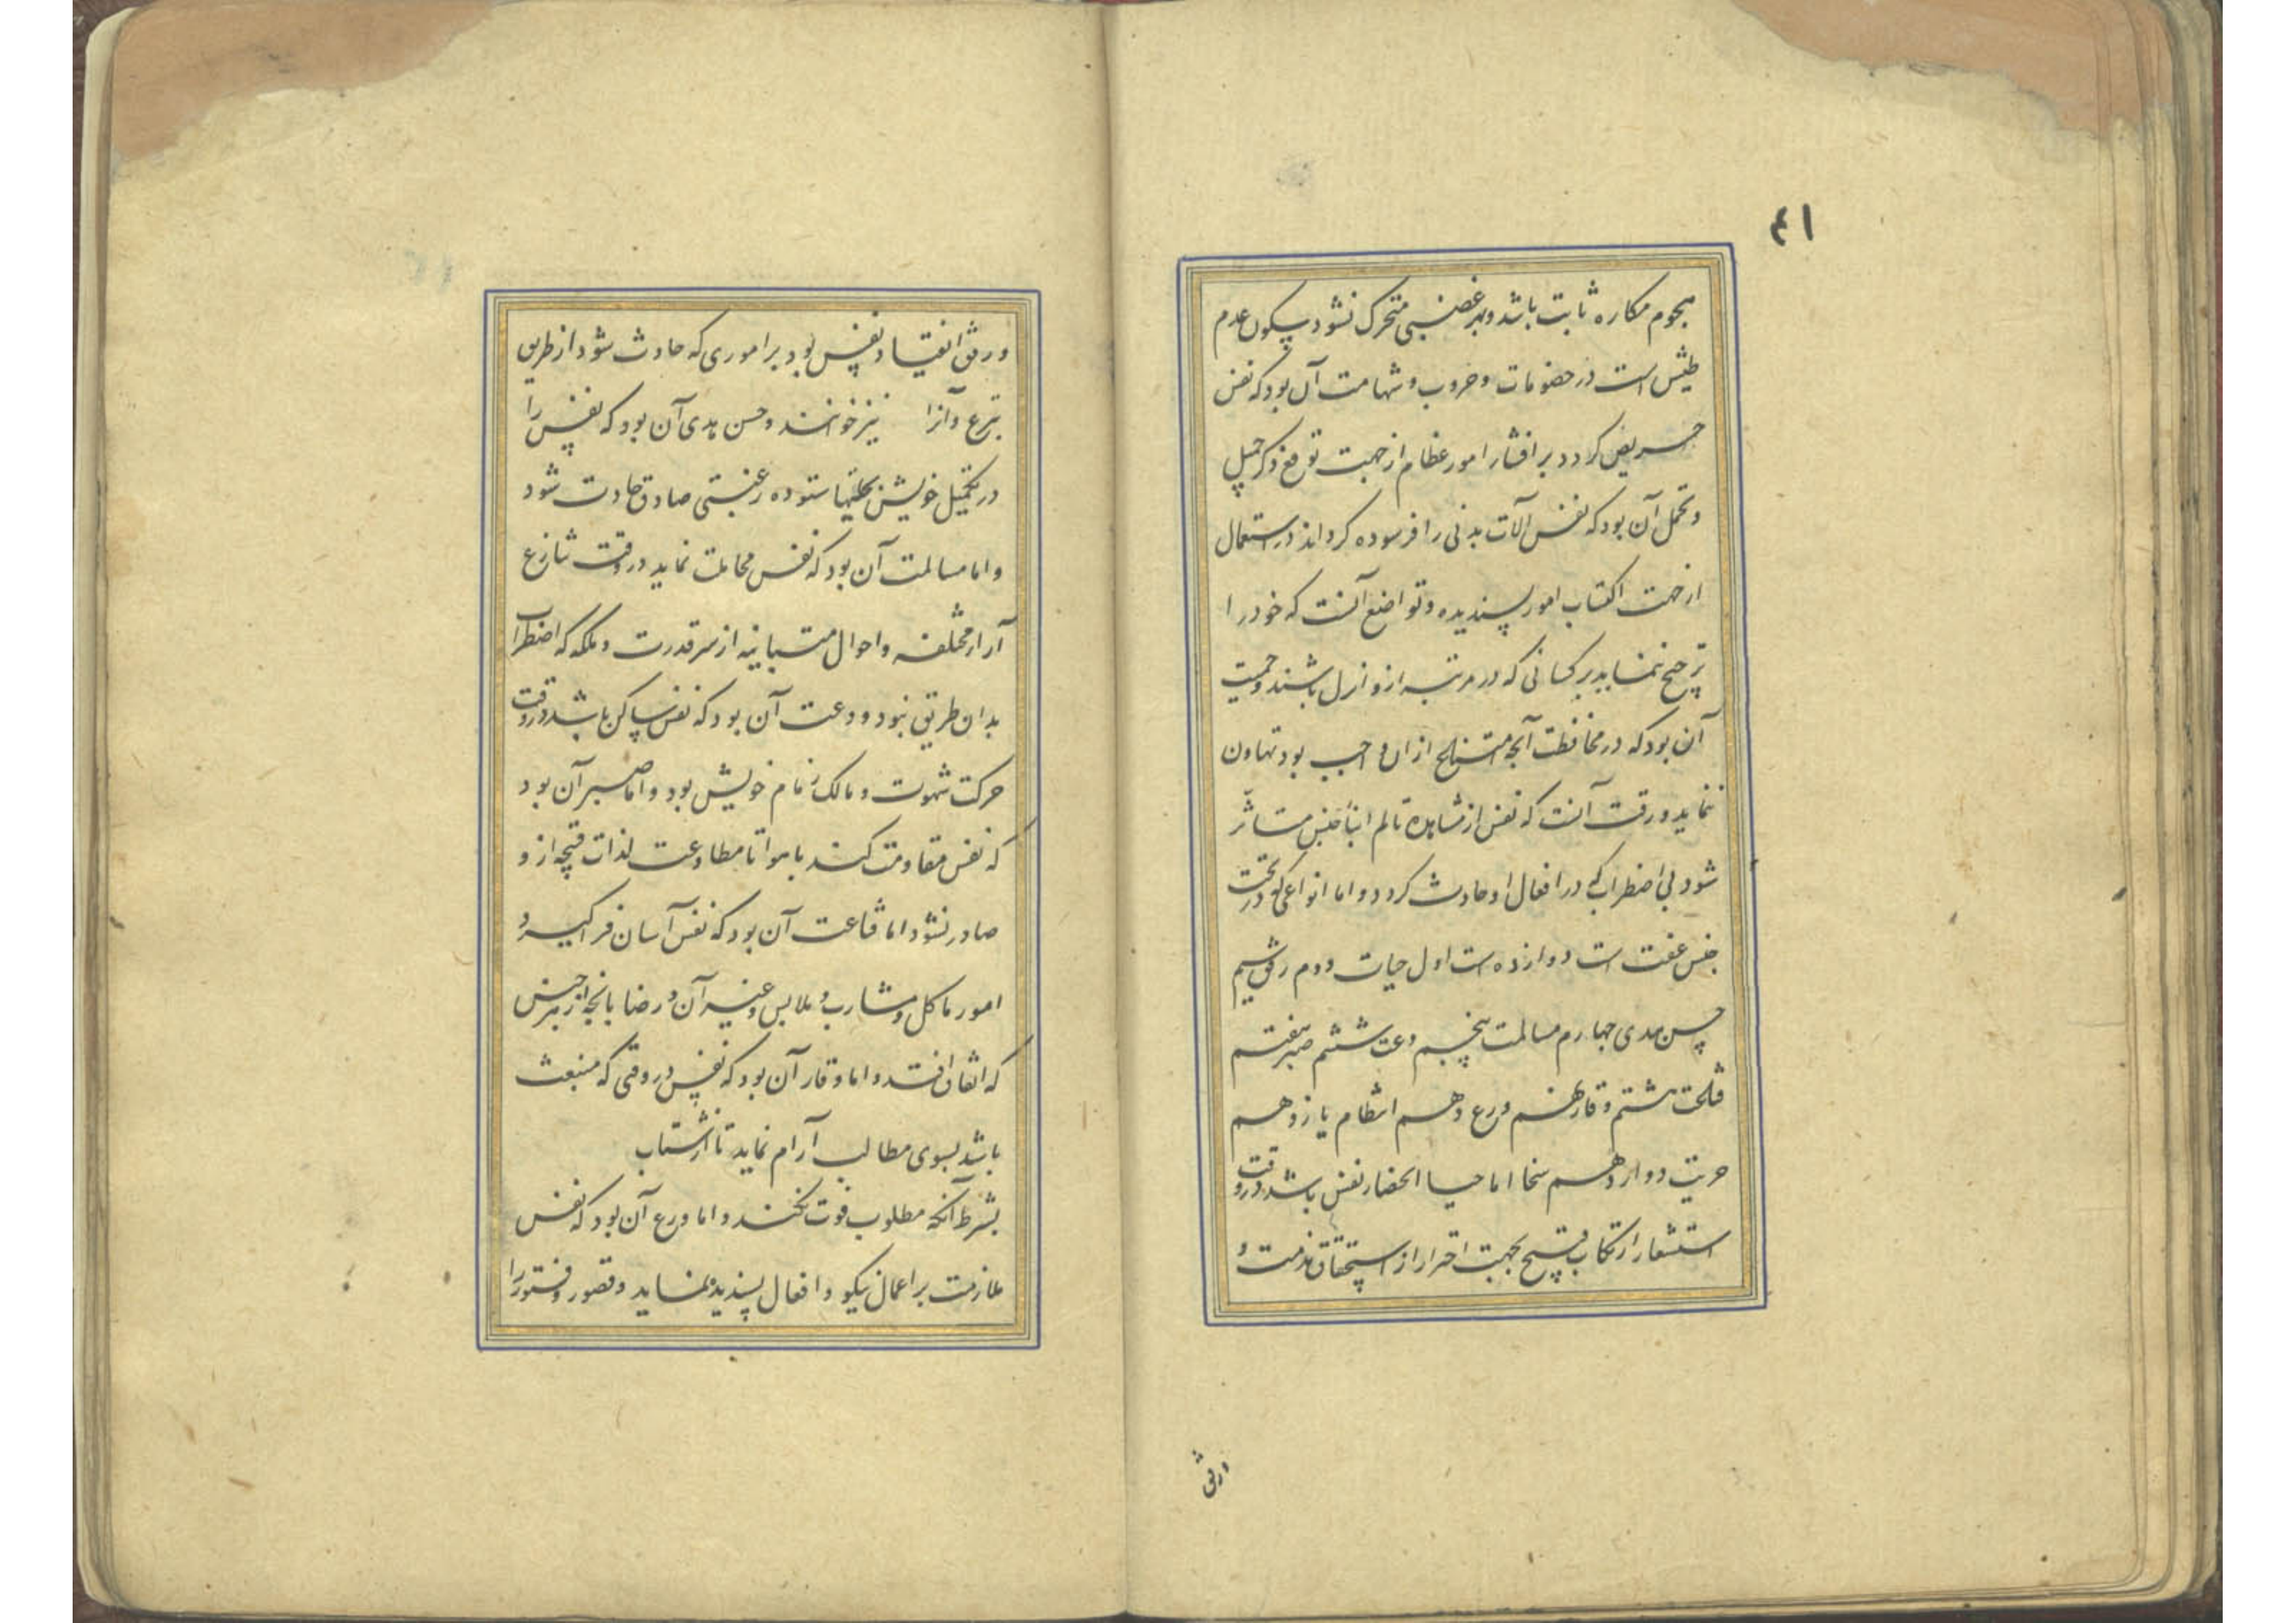 ۴۱
هجوم مکاره ثابت باشد و بهر غضبی متحرک نشود و سکون عدم
طیش است در خصومات و حروب و شهامت آن بود که نفس
حریص گردد بر اقتنار امور عظام از جهت توقع ذکر جمیل
و تحمل آن بود که نفس آلات بدنی را فرسوده گرداند در استعمال
از جهت اکتساب امور پسندیده و تواضع آنست که خود را
ترجیح ننماید بر کسانی که در مرتبه ازو انزل باشند و حمیت
آن بود که در محافظت آنچه محافظت ازان واجب بود تهاون
ننماید و رقت آنست که نفس از مشاهده تالم ابنأ جنس متأثر
شود بی اضطرابی که در افعال او حادث گردد و اما انواعی که در تحت
جنس عفت است دوازده است اول حیات دوم رفق سیم
حسن هدی چهارم مسالمت پنجم دعت ششم صبر هفتم
قناعت هشتم وقار نهم ورع دهم انتظام یازدهم
حریت دوازدهم سخا اما حیا انحصار نفس باشد در وقت
استشعار ارتکاب قبیح بجهت احتراز از استحقاق مذمت و
ورفق انقیاد نفس بود بر اموری که حادث شود از طریق
تبرع و آنرا نیز خوانند و حسن هدی آن بود که نفس را
در تکمیل خویش بحلیتها ستوده رغبتی صادق حادث شود
و اما مسالمت آن بود که نفس مجاملت نماید در وقت تنازع
آراء مختلفه و احوال متباینه از سر قدرت و ملکه که اضطراب
بدان طریق نبود و دعت آن بود که نفس ساکن باشد در وقت
حرکت شهوت و مالک زمام خویش بود و اما صبر آن بود
که نفس مقاومت کند با هوا تا مطاوعت لذات قبیحه ازو
صادر نشود اما قناعت آن بود که نفس آسان فراگیرد
امور ماکل و مشارب و ملابس و غیر آن و رضا بانچه از هر جنس
که اتفاق افتد و اما وقار آن بود که نفس در وقتی که منبعث
باشد بسوی مطالب آرام نماید تا از شتاب
بشرط آنکه مطلوب فوت نکند و اما ورع آن بود که نفس
ملازمت بر اعمال نیکو و افعال پسندیده نماید و قصور و فتور را